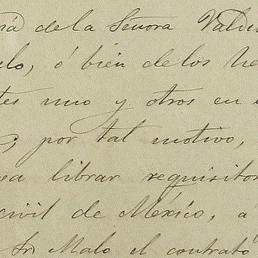 de la Señora Valdi
lo, ó bien de los he
tes uno y otros en
por tal motivo,
ea librar requisitor
civil de México, a
Sr Malo el contrató